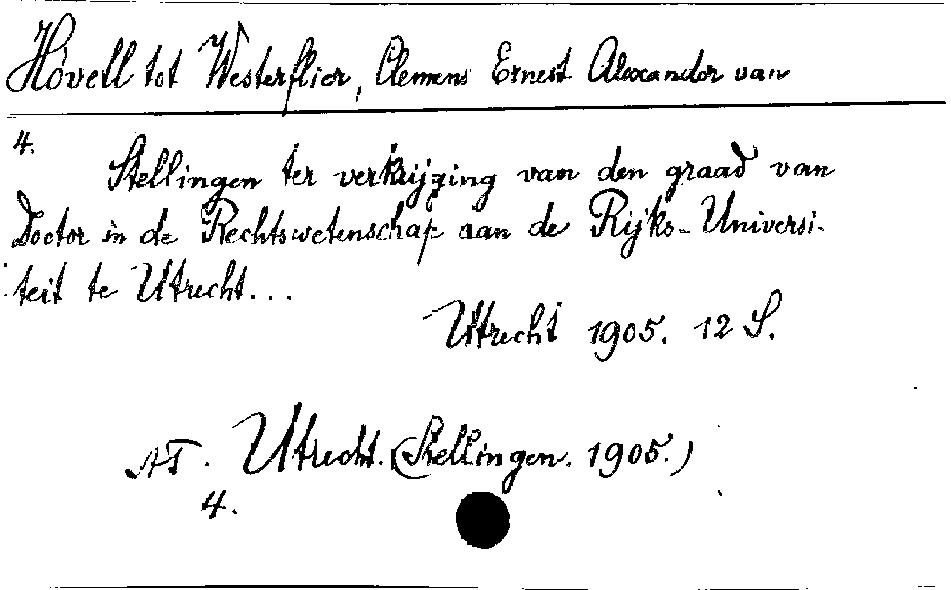 Hövell tot Westerflier, Clemens Ernest Alexander van
4.
Stellingen ter verkrijging van den graad van
Doctor in de Rechtswetenschap aan de Rijks-Universi-
teit te Utrecht...
Utrecht 1905. 12 S.
AT. Utrecht. (Stellingen. 1905.)
4.